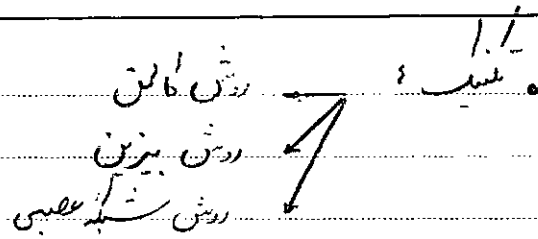 تکنیک ۴ روش کالمن
روش بیزین
روش شبکه عصبی